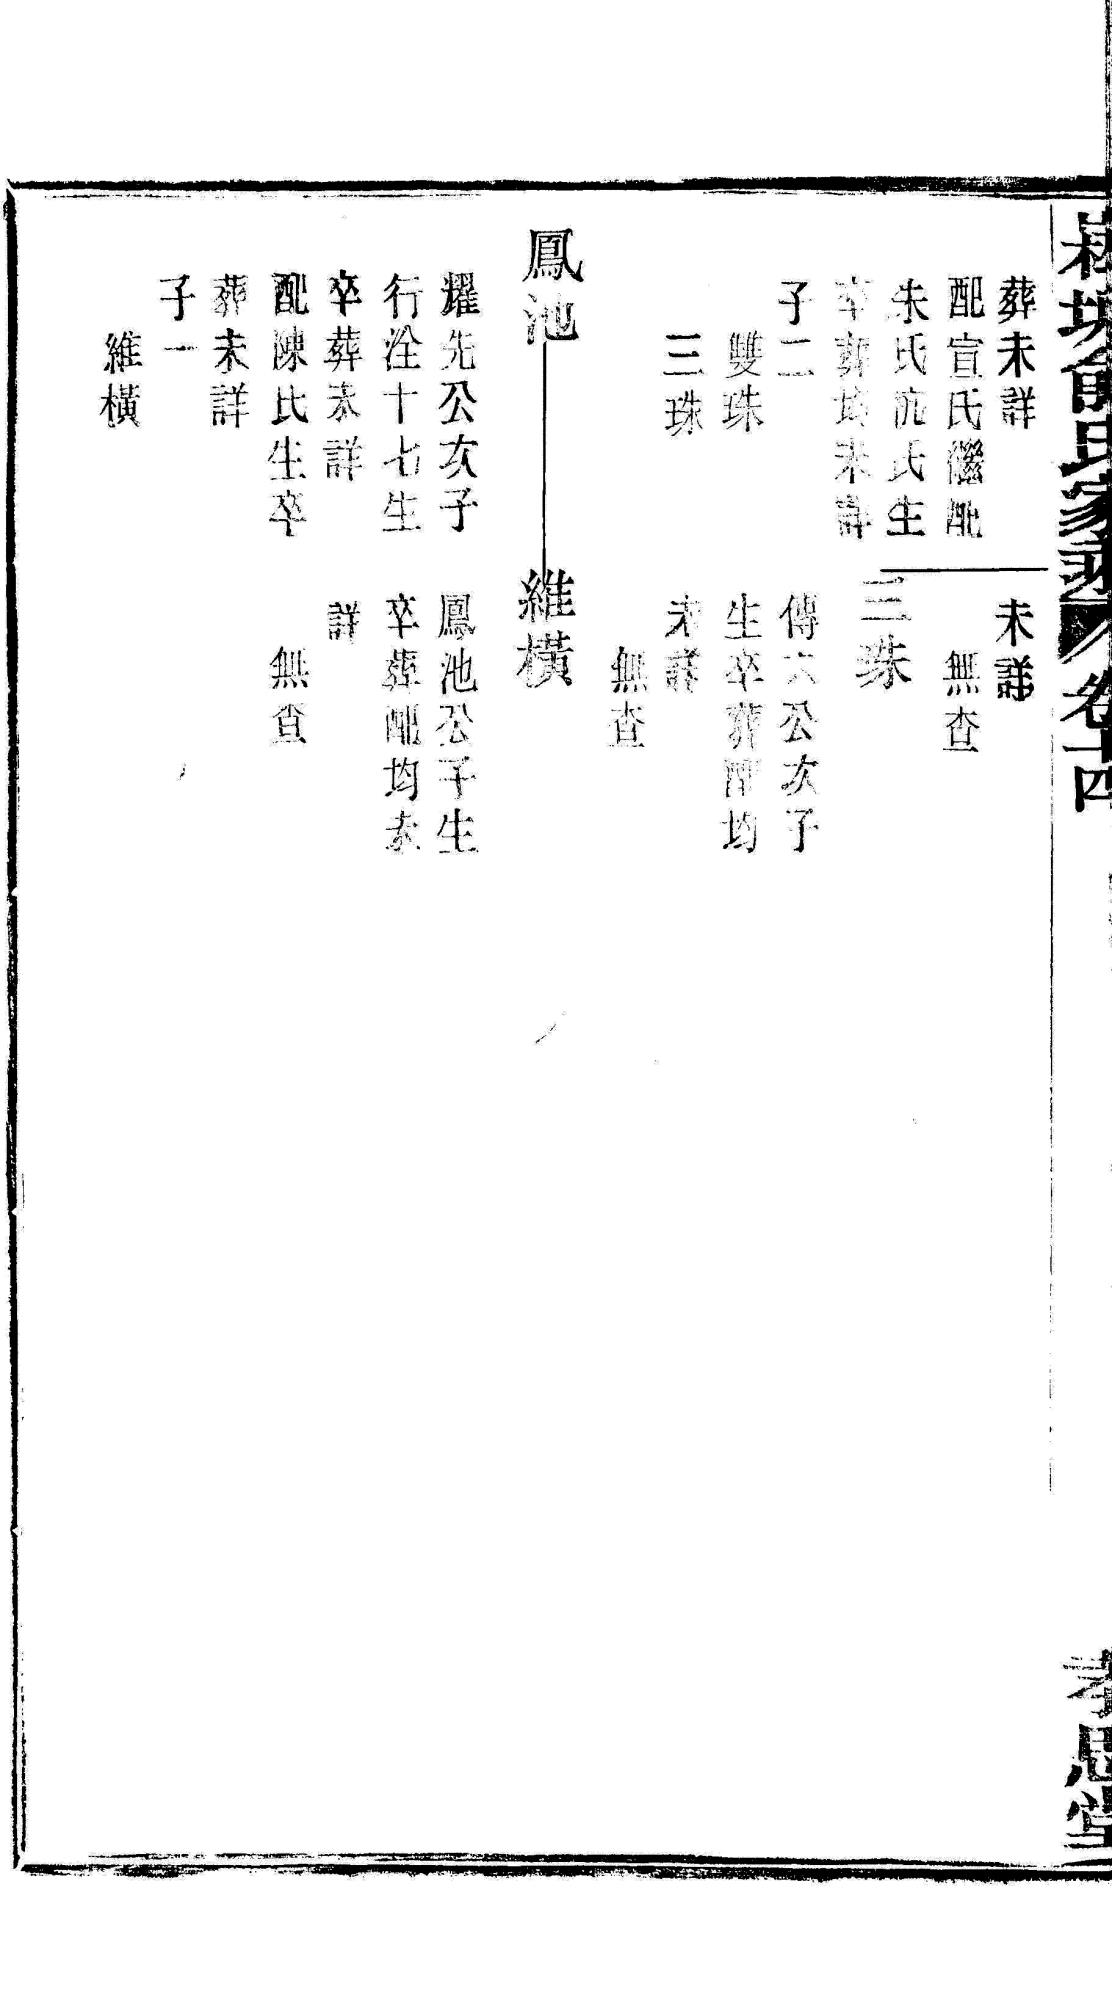 俞氏家乘 卷十四
孝思堂
葬未詳
配宣氏繼配
朱氏沈氏生
卒葬均未詳
子二
雙珠
三珠
未詳
無查
三珠
傳六公次子
生卒葬配均
未詳
無查
鳳池
耀先公次子
行洤十七生
卒葬未詳
配陳氏生卒
葬未詳
子一
維橫
維橫
鳳池公子生
卒葬配均未
詳
無查